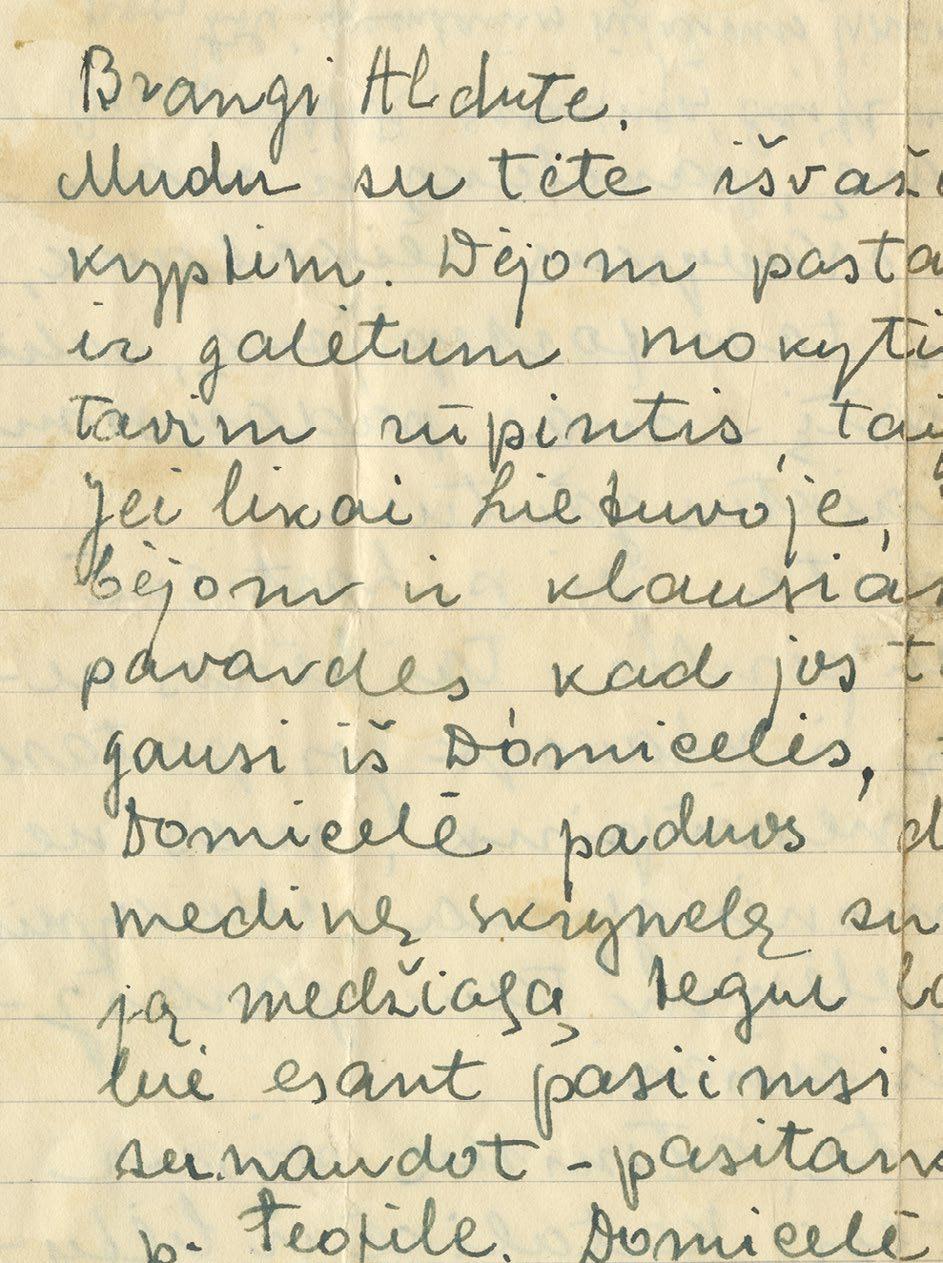 Brangi Aldute,
Mudu su tėte išvaž
kryptim. Dėjom pasta
ir galėtum mokyti
tavim rūpintis, tai
Jei likai Lietuvoje,
bėjom ir klausia
pavardes, kad jos t
gausi iš Domicelės,
Domicelė paduos d
medinę skrynelę su
ją medžiagą, tegul
lui esant pasiimsi
sunaudot - pasitar
p. Teofile. Domicelė